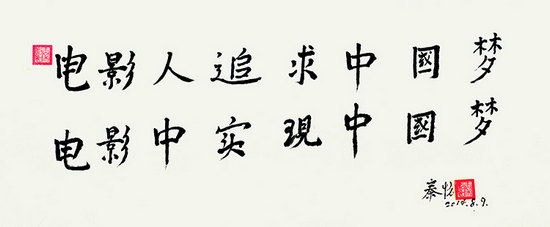 电影人追求中國梦
电影中实現中國梦
秦怡
2014.8.9.